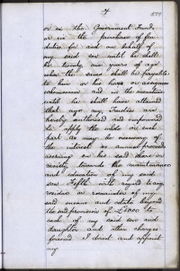 4
or in the Government Funds
or in the purchase of for
duties for and on behalf of
my said son until he shall
be twenty one years of age
when the same shall be payable
to him or his heirs or assigns
and in the meantime
until he shall have attained
that age my Trustees are
hereby authorised and empowered
to apply the whole or such
part as may be necessary of
the interest or annual proceeds
accruing on his said share or
towards the maintenance
and education of my said
son Fifth with regard to any
residue or remainder of my
said means and estate beyond
the said provisions of £2000 to
each of my said son and
daughter and other charges
foresaid I direct and appoint
my